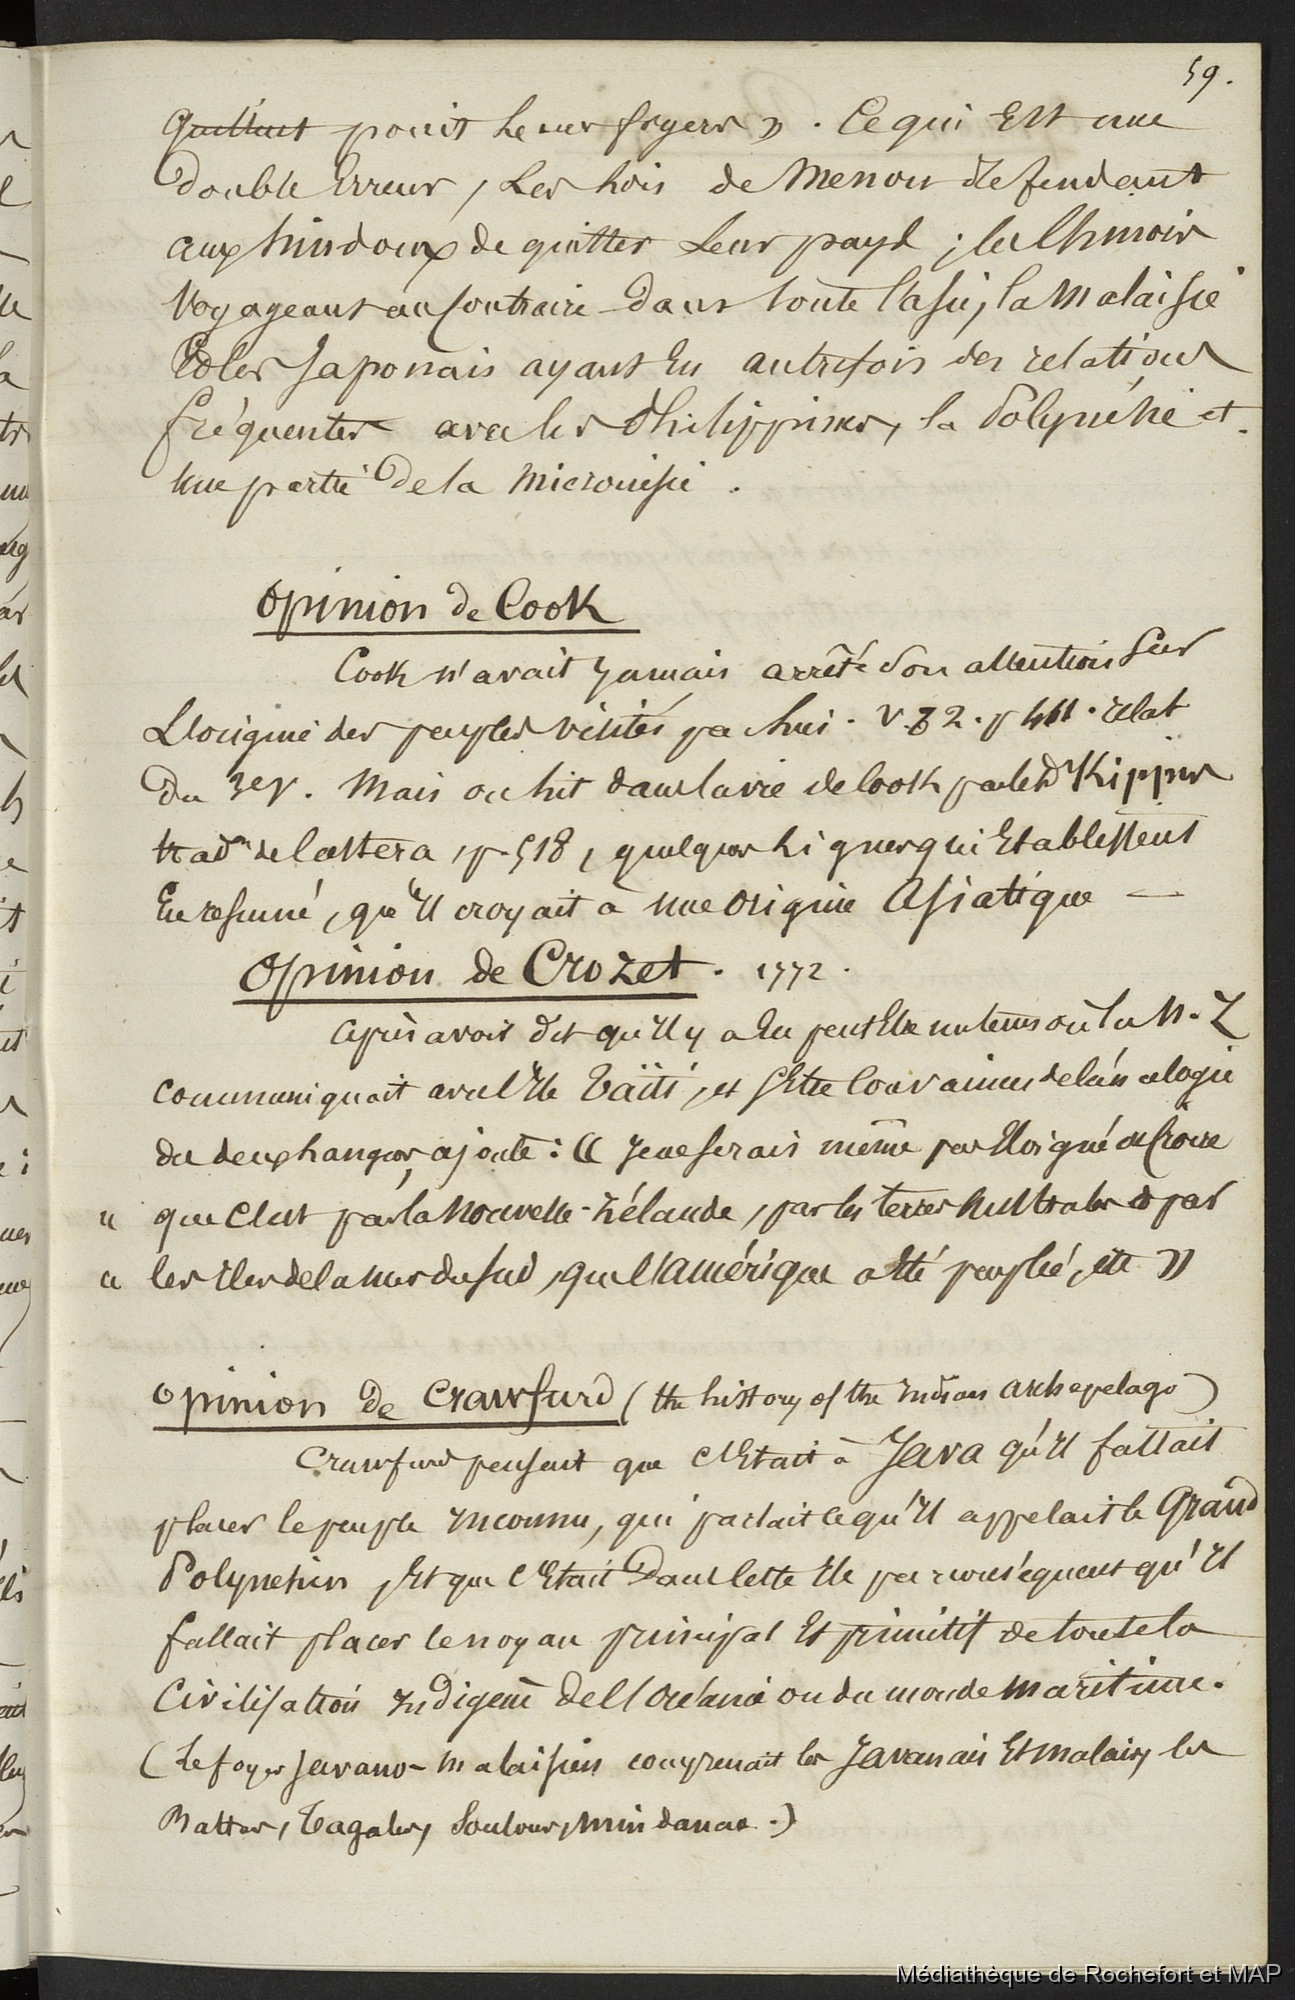 59.
quittent point leurs foyers ». Ce qui Est une
double Erreur, Les Lois de Menou défendant
aux hindoux de quitter Leur pays ; les Chinois
Voyageant au Contraire dans toute l'asie, la Malaisie
Et les Japonais ayant Eu autrefois des relations
fréquentes avec les Philippines, la Polynésie et
Une partie De la Micronésie.
Opinion de Cook
Cook n'avait jamais arrêté son attention sur
L'origine des peuples visités par lui. V. 2. p relat
Du 3e V. Mais on lit dans la vie de Cook par le Dr Kippis
tradon de Castera, p. 518, quelques Lignes qui Etablissent
En résumé, qu'Il croyait à Une Origine Asiatique —
Opinion de Crozet. 1772.
Après avoir dit qu'Il y a Eu peut Etre un tems où la N. Z
communiquait avec l'Ile Taïti, et s'Etre Convaincu de l'analogie
des deux langues, ajoute : « Je ne serais même pas Eloigné de Croire
" que C'est par la Nouvelle-Zélande, par les terres Australes & par
" les Iles de la mer du Sud, que l'Amérique a été peuplée, etc »
Opinion de Crawfurd (the history of the Indian Archipelago)
Crawfurd pensait que C'Etait à Java qu'Il fallait
placer le peuple Inconnu, qui parlait ce qu'Il appelait le Grand
Polynésien, Et que C'Etait Dans Cette Ile par conséquent qu'Il
fallait placer le noyau principal Et primitif de toute la
Civilisation Indigène De l'Océanie ou du monde Maritime.
(Le foyer Javano-Malaisien comprenait les Javanais Et Malais, les
Battas, Tagales, Soulous, Mindanao.)
Médiathèque de Rochefort et MAP